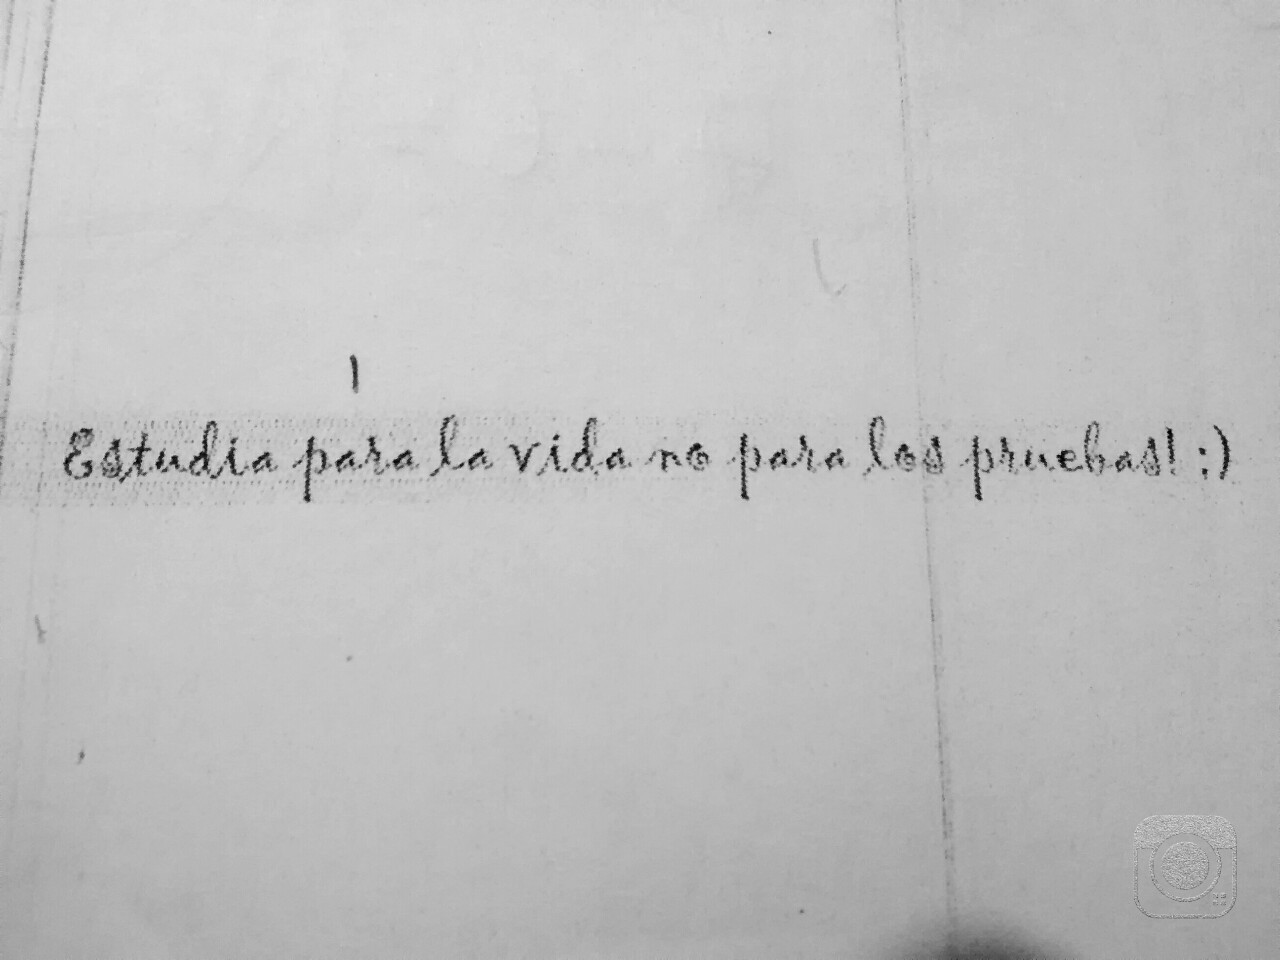 Estudia para la vida no para los pruebas! :)